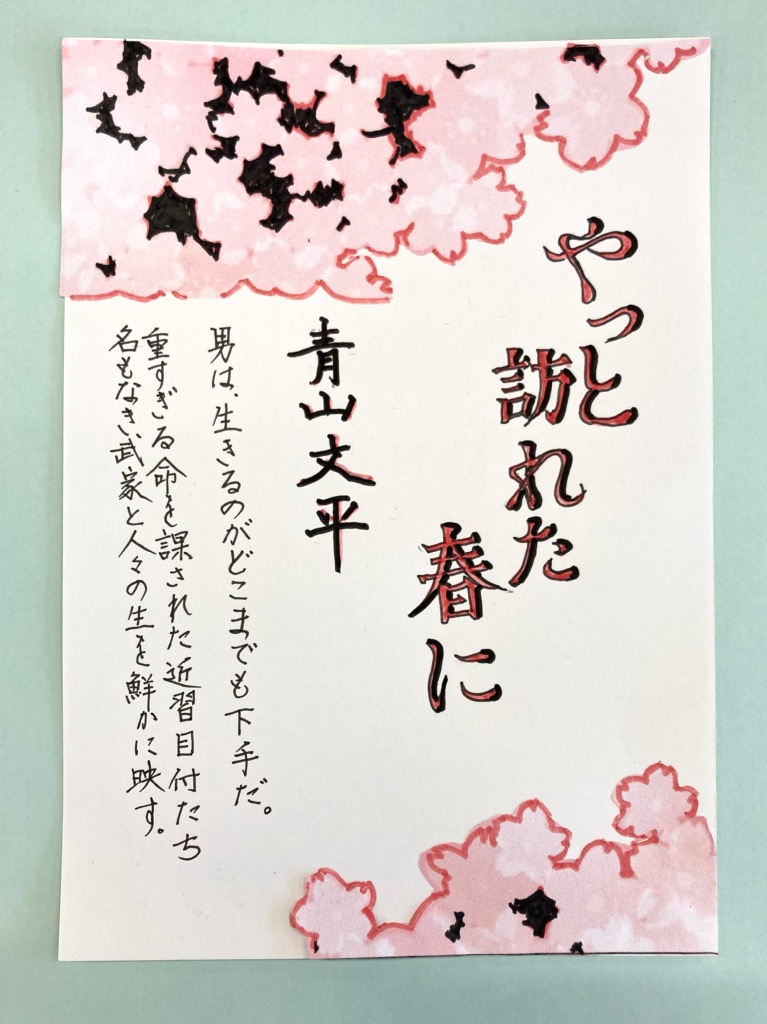 やっと
訪れた
春に
青山文平
男は、生きるのがどこまでも下手だ。
重すぎる命を課された近習目付たち
名もなき武家と人々の生を鮮かに映す。